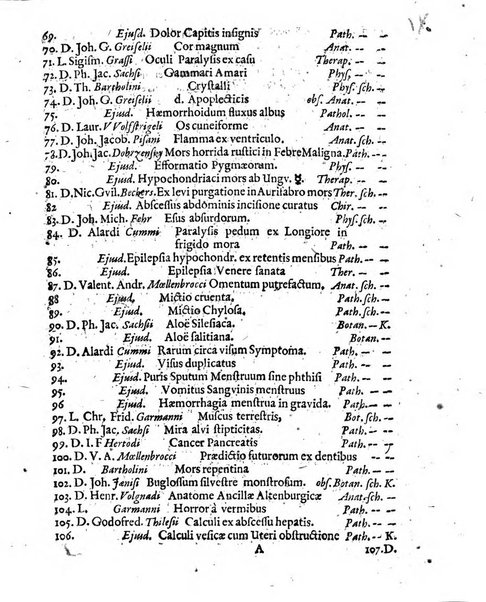 69. Ejusd. Dolor Capitis insignis Path. — —
70. D. Joh. G. Greiselii Cor magnum Anat. — —
71. L. Sigism. Grassi Oculi Paralysis ex casu Therap. — —
72. D. Ph. Jac. Sachsi Gammari Amari Phys. — —
73. D. Th. Bartholini Crystalli Phys. — —
74. D. Joh. G. Greiselii d. Apoplecticis obs. Anat. — —
75. Ejusd. Hæmorrhoidum fluxus albus Pathol. — —
76. D. Laur. VVolfstrigeli Os cuneiforme Anat. — —
77. D. Joh. Jacob. Pisani Flamma ex ventriculo. Anat. sch. —
78. D. Joh. Jac. Dobrzensky Mors horrida rustici in Febre Maligna. Path. — —
79. Ejusd. Efformatio Pygmæorum. Phys. — —
80. Ejusd. Hypochondriaci mors ab Ungv. ☿. Therap. — —
81. D. Nic. Gvil. Beckers. Ex levi purgatione in Aurifabro mors Ther. sch. —
82 Ejusd. Abscessus abdominis incisione curatus Chir. — —
83. D. Joh. Mich. Fehr Esus absurdorum. Phys. sch. —
84. D. Alardi Cummi Paralysis pedum ex Longiore in
frigido mora Path. — —
85. Ejusd. Epilepsia hypochondr. ex retentis mensibus Path. — —
86. Ejusd. Epilepsia Venere sanata Ther. — —
87. D. Valent. Andr. Mœllenbrocci Omentum putrefactum. Anat. sch. —
88 Ejusd. Mictio cruenta. Path. sch. —
89. Ejusd. Mictio Chylosa. Path. sch. —
90. D. Ph. Jac. Sachsii Aloë Silesiaca. Botan. — K.
91. Ejusd. Aloë salitiana. Botan. — —
92. D. Alardi Cummii Rarum circa visum Symptoma. Path. — —
93. Ejusd. Visus duplicatus Path. — —
94. Ejusd. Puris Sputum Menstruum sine phthisi Path. — —
95. Ejusd. Vomitus Sangvinis menstruus Path. — —
96 Ejusd. Hæmorrhagia menstrua in gravida. Path. — —
97. L. Chr, Frid. Garmanni Muscus terrestris, Bot. sch. —
98. D. Ph. Jac, Sachsi Mira alvi stipticitas. Path. — —
99. D. I. F Hertodi Cancer Pancreatis Path. — —
100. D. V. A. Mœllenbrocci Prædictio futurorum ex dentibus Path. — —
101. D. Bartholini Mors repentina Path. — —
102. D. Joh. Janisi Buglossum silvestre monstrosum. obs. Botan. sch. K.
103. D. Henr. Volgnadi Anatome Ancillæ Altenburgicæ Anat. sch. —
104. L. Garmanni Horror à vermibus Path. — —
105. D. Godofred. Thilesii Calculi ex abscessu hepatis. Path. — —
106. Ejusd. Calculi vesicæ cum Uteri obstructione Path. — K.
A 107. D.